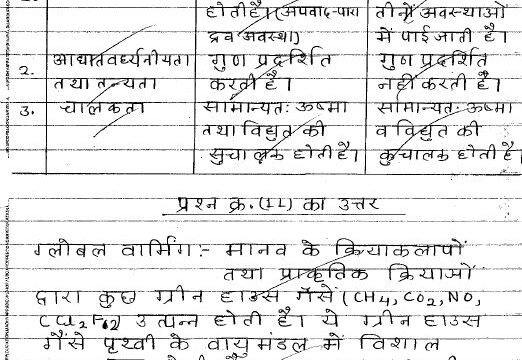 होती है। (अपवाद-पारा तीनों अवस्थाओं
द्रव अवस्था) में पाई जाती है।
2. आघातवर्ध्यनीयता गुण प्रदर्शित गुण प्रदर्शित
तथा तन्यता करती है। नहीं करती है।
3. चालकता सामान्यतः ऊष्मा सामान्यतः ऊष्मा
तथा विद्युत की व विद्युत की
सुचालक होती है। कुचालक होती है।
प्रश्न क्र. (11) का उत्तर
ग्लोबल वार्मिंग :- मानव के क्रियाकलापों
तथा प्राकृतिक क्रियाओं
द्वारा कुछ ग्रीन हाउस गैसें (CH4, CO2, NO,
CCl2F2) उत्पन्न होती है। ये ग्रीन हाउस
गैसे पृथ्वी के वायुमंडल में विशाल